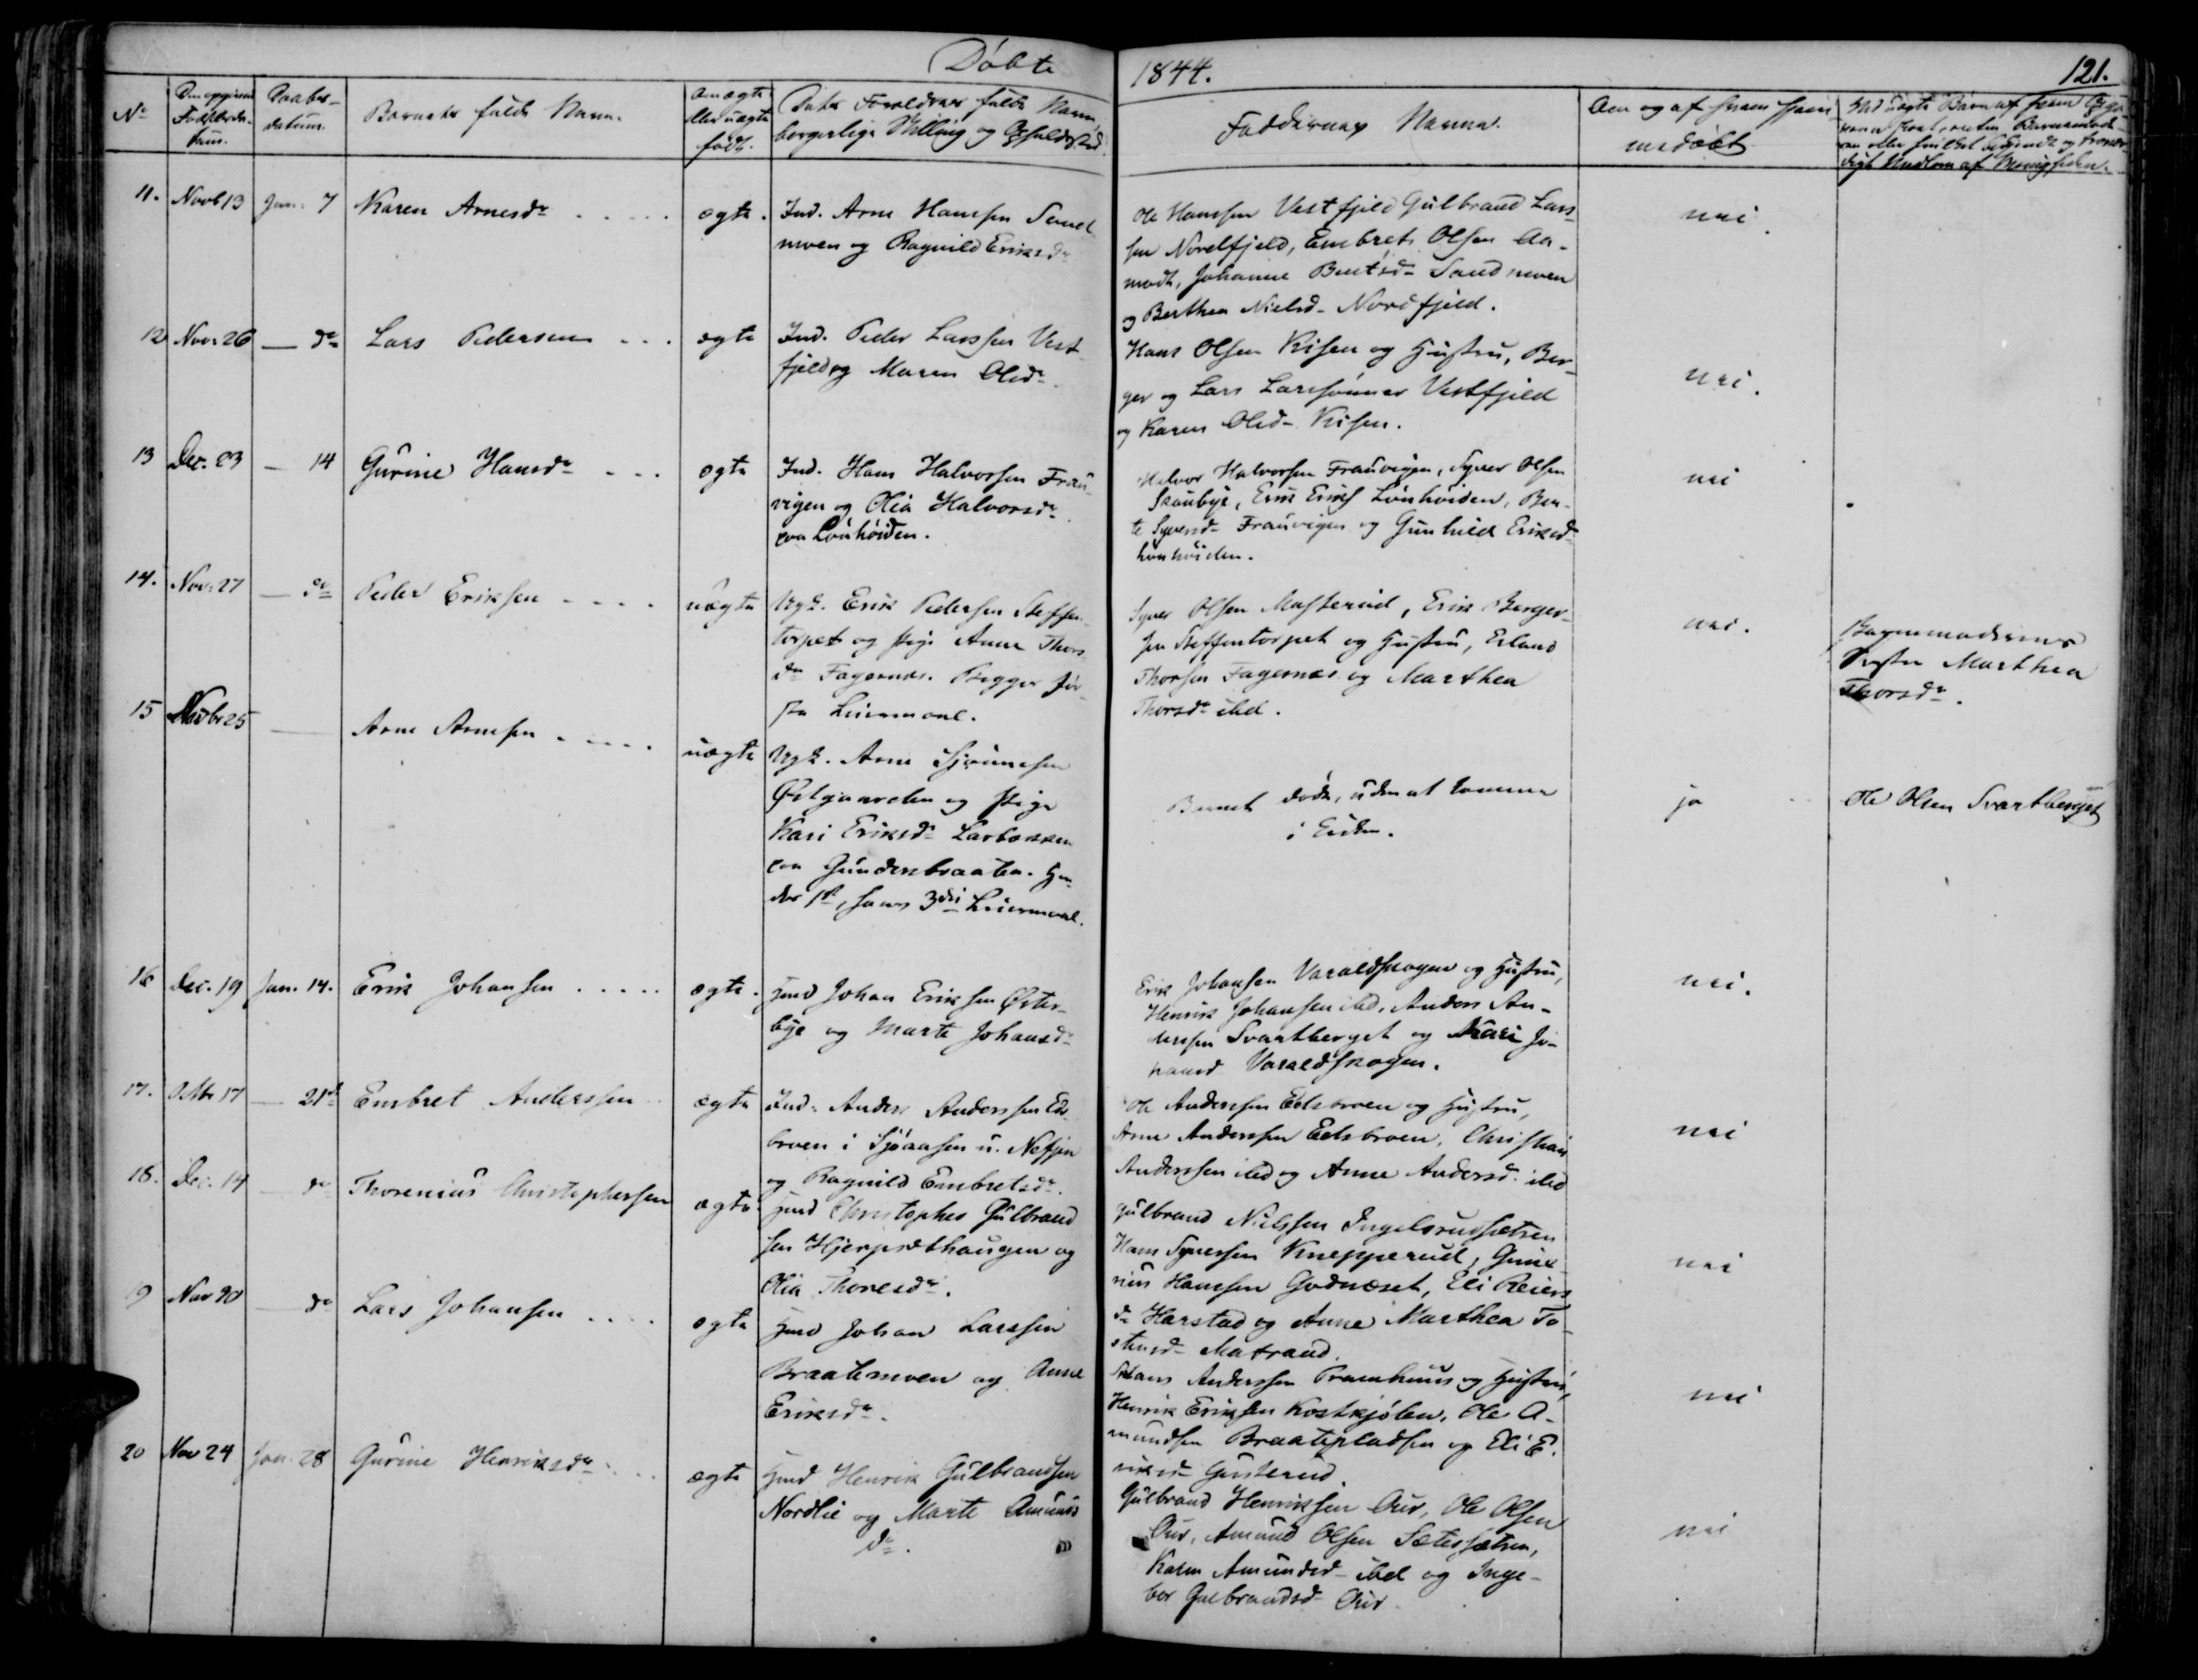 Døbte
1844.
121.
No
Daabs-
datum.
Barnets fulde Navn.
Om ægte
eller uægte
født.
Dets Forældres fulde Navn,
borgerlige Stilling og Opholdssted.
Faddernes Navne.
Om og af hvem hjem-
medøbt
11.
Novb 13
Jan. 7
Karen Arnesdr
ægte.
Ind. Arne Hansen Sand
moen og Ragnild Eriksdr
Ole Hansen Vestfjeld Gulbrand Lars-
sen Nordfjeld, Embret Olsen Aa-
modt, Johanne Berntsd- Sandmoen
og Berthea Nielsd- Nordfjeld.
nei
12
Nov. 26
— do
Lars Pedersen
ægte
Ind. Peder Larssen Vest-
fjeld og Maren Olsdr
Hans Olsen Kisen og Hustru, Ber-
ger og Lars Larssønner Vestfjeld
og Karen Olsd- Kisen.
nei.
13
Dec. 23
— 14
Gurine Hansdr
ægte
Ind. Hans Halvorsen Frau-
vigen og Olia Halvorsdr
paa Lønhøiden.
Halvor Halvorsen Frauvigen, Syver Olsen
Skaubye, Erik Eriks Lønhøiden, Ber-
te Syversd- Frauvigen og Gunhild Eriksd-
Lønhøiden.
nei
14.
Nov. 27
— do
Peder Eriksen
uægte
Ungk. Erik Pedersen Steffen-
torpet og Pige Anne Thors-
dr Fagernæs. Begges før-
ste Leiermaal.
Syver Olsen Masterud, Erik Berger-
sen Steffentorpet og Hustru, Erland
Thorsen Fagernæs og Marthea
Thorsdr ibd.
nei.
Barnemoderens
Søster Marthea
Thorsdr.
15
Novbr 25
Arne Arnesen
uægte
Ungk. Arne
Østgaarden og Pige
Kari Eriksdr
paa Gundersbraaten. Hen-
des 1st, hans 3die Leiermaal.
Barnet døde, uden at komme
i Kirken.
ja
Ole Olsen Svartberget
16
Dec. 19
Jan. 14.
Erik Johansen
ægte.
Hmd Johan Eriksen Øster-
bye og Marte Johansdr
Erik Johansen Varaldskogen og Hustru,
Henrik Johansen ibd, Anders An-
dersen Svartberget og Kari Jo-
hansd Varaldskogen.
nei.
17.
Octb 17
— 21de
Embret Anderssen
ægte
Ind. Anders Anderssen Eds-
broen i Sjøaasen u.
og Ragnild Embretsdr.
Ole Anderssen Edsbroen og Hustru,
Arne Anderssen Edsbroen, Christian
Anderssen ibd og Anne Andersd- ibd
nei
18.
Dec. 14
— do
Thorenius Christophersen
ægte
Hmd Christopher Gulbrand
sen Hjerpsethaugen og
Olia Thoresdr.
Gulbrand Nielssen Ingelsrudsætren
Hans Syverssen Knapperud, Gune-
rius Hanssen Godnæset, Eli Reiers
dr Harstad og Anne Marthea To-
stensd- Matrand
nei
19
Nov 20
— do
Lars Johansen
ægte
Hmd Johan Larssen
Braatemoen og Anne
Eriksdr.
Hans Anderssen Pramhuus og Hustru,
Henrik Eriksen Kostkjølen, Ole A-
mundsen Braatepladsen og Eli E-
riksd- Gusterud
nei
20
Nov 24
Jan. 28
Gurine Henriksdr
ægte
Hmd Henrik Gulbrandsen
Nordlie og Marte Amunds
dr.
Gulbrand Henriksen Aur, Ole Olsen
Aur, Amund Olsen Sætersætren,
Karen Amundsd- ibd og Inge-
bor Gulbrandsd- Aur
nei